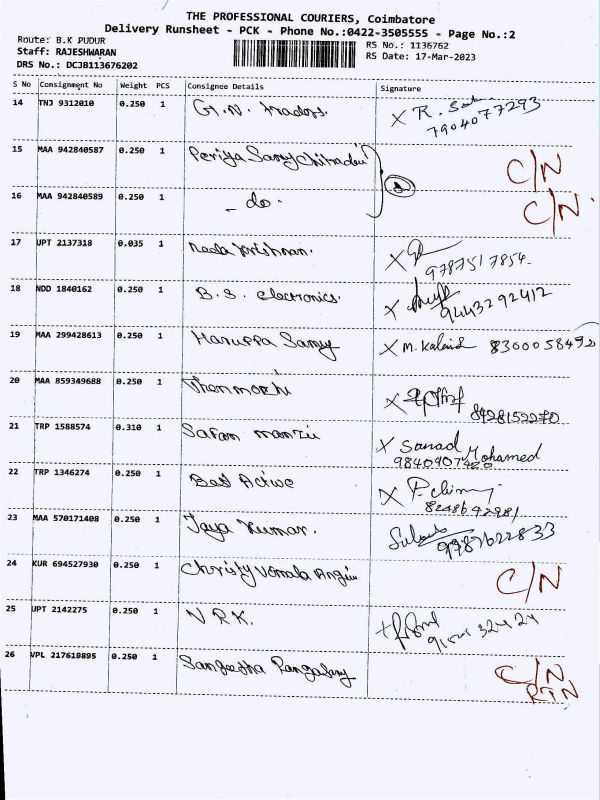 THE PROFESSIONAL COURIERS, Coimbatore
Delivery Runsheet - PCK - Phone No.:0422-3505555 - Page No.:2
Route: B.K PUDUR
RS No.: 1136762
Staff: RAJESHWARAN
RS Date: 17-Mar-2023
DRS No.: DCJB113676202
S No Consignment No Weight PCS Consignee Details Signature
14 TNJ 9312010 0.250 1 G.N. traders. X R. 7904077293
15 MAA 942840587 0.250 1 Periya Samy Chitradevi C/N
16 MAA 942840589 0.250 1 - do - C/N
17 UPT 2137318 0.035 1 Krishnan. X 9787517854
18 NDD 1840162 0.250 1 B.S. electronics. X 9443292412
19 MAA 299428613 0.250 1 Samy X M. 8300058492
20 MAA 859349688 0.250 1 Thenmozhi X 8428152270
21 TRP 1588574 0.310 1 Safan X Sanad Mohamed
22 TRP 1346274 0.250 1 Best Active X P. 8248692981
23 MAA 570171408 0.250 1 Jaya Kumar. 9787622833
24 KUR 694527930 0.250 1 Christy C/N
25 UPT 2142275 0.250 1 N R K.
26 VPL 217619895 0.250 1 Sangeetha Rangasamy C/N
RTN